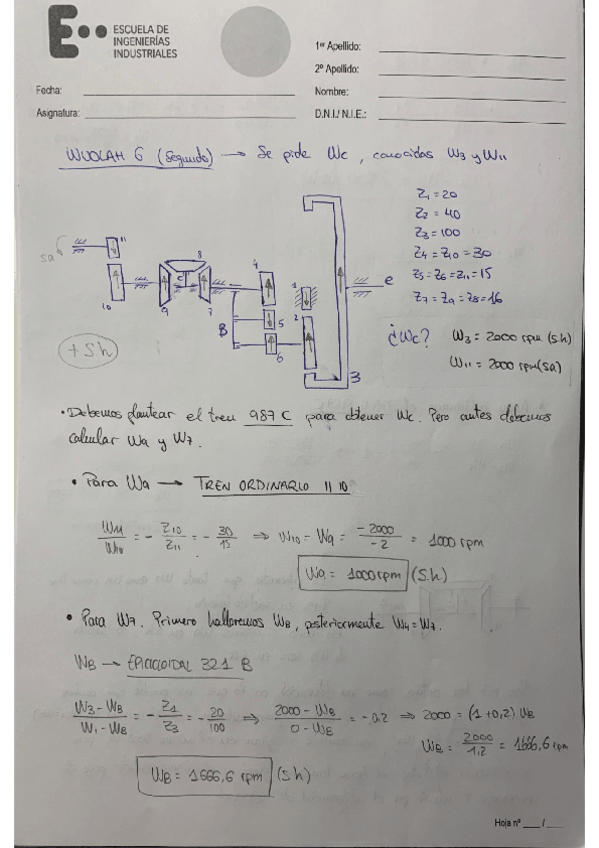 ESCUELA DE
INGENIERÍAS
INDUSTRIALES
1er Apellido:
2º Apellido:
Fecha:
Nombre:
Asignatura:
D.N.I./ N.I.E.:
WUOLAH 6 (Segundo) → Se pide Wc, conocidas W3 y W11
Z1 = 20
Z2 = 40
Z3 = 100
Z4 = Z10 = 30
Z5 = Z6 = Z11 = 15
Z7 = Z9 = Z8 = 16
sa
11
10
9
8
C
7
4
B
5
6
1
2
3
e
+ Sh
¿Wc?
W3 = 2000 rpm (sh)
W11 = 2000 rpm (sa)
• Debemos plantear el tren 987 C para obtener Wc. Pero antes debemos
calcular W9 y W7.
• Para W9 → TREN ORDINARIO 11 10
W11/W10 = - Z10/Z11 = - 30/15 ⇒ W10 = W9 = -2000/-2 = 1000 rpm
W9 = 1000 rpm (S.h)
• Para W7. Primero hallaremos WB, posteriormente W4 = W7.
WB → EPICICLOIDAL 321 B
W3 - WB/W1 - WB = - Z1/Z3 = - 20/100 ⇒ 2000 - WB/0 - WB = -0,2 ⇒ 2000 = (1 + 0,2) WB
WB = 2000/1,2 = 1666,6 rpm
WB = 1666,6 rpm (sh)
Hoja nº ___ / ___